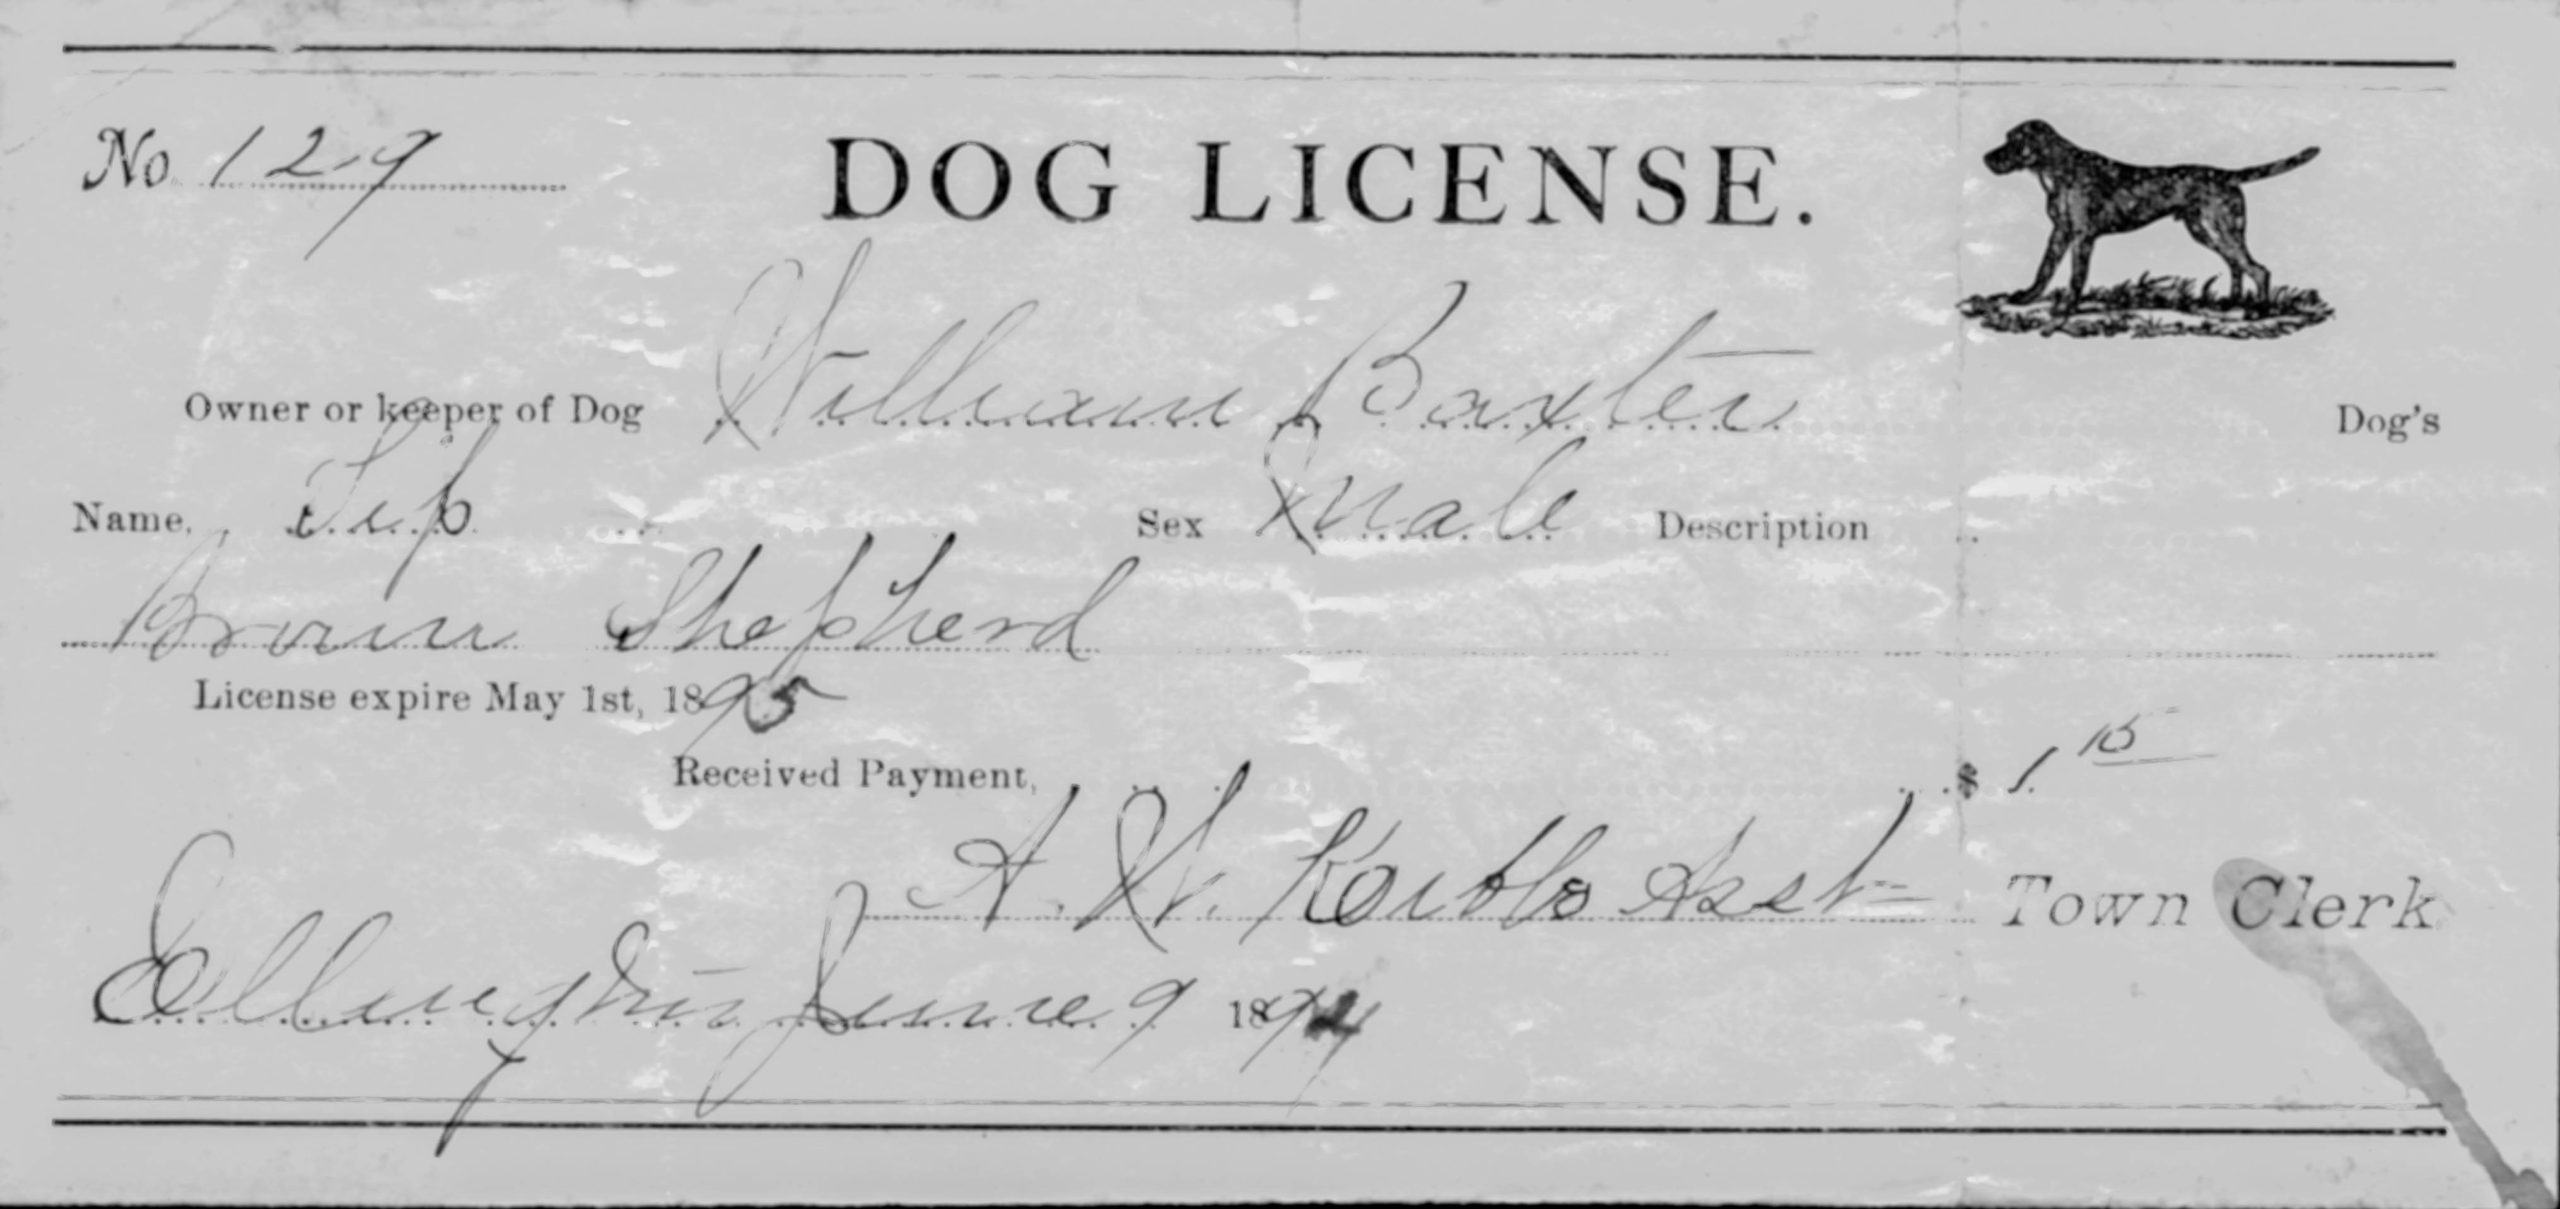 No. 129 DOG LICENSE.
Owner or keeper of Dog William Baxter Dog's
Name, Tip Sex Male Description
Brown Shepherd
License expire May 1st, 1895
Received Payment, $ 1.15
A. W. Asst Town Clerk
Ellington June 9 1894